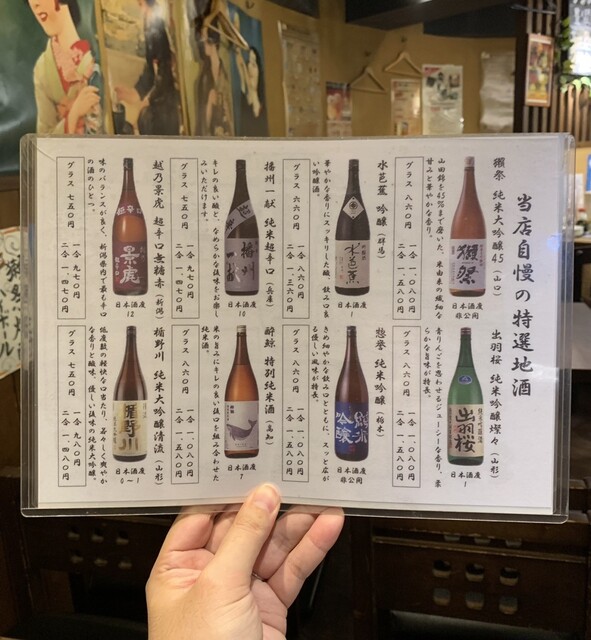 当店自慢の特選地酒
獺祭 純米大吟醸45（山口）
山田錦を45%まで磨いた、米由来の繊細な
甘みと華やかな香り。
グラス 八六〇円
一合 一、〇八〇円
二合 一、五八〇円
獺祭
日本酒度
非公開
水芭蕉 吟醸（群馬）
華やかな香りにスッキリした酸、飲み口良
い吟醸酒。
グラス 六六〇円
一合 八六〇円
二合 一、三六〇円
水芭蕉
日本酒度
1
播州一献 純米超辛口（兵庫）
キレの良い酸と、なめらかな後味をお楽し
みいただけます。
グラス 七五〇円
一合 九七〇円
二合 一、四七〇円
播州一献
日本酒度
10
越乃景虎 超辛口無糖赤（新潟）
味のバランスが良く、新潟県内で最も辛口
の酒のひとつ。
グラス 七五〇円
一合 九七〇円
二合 一、四七〇円
超辛口
景虎
日本酒度
12
出羽桜 純米吟醸燦々（山形）
青りんごを思わせるジューシーな香り、柔
らかな旨味が特長。
グラス 八六〇円
一合 一、〇八〇円
二合 一、五八〇円
出羽桜
日本酒度
1
惣誉 純米吟醸（栃木）
きめ細やかな飲み口とともに、スッと広が
る優しい風味が特長。
グラス 八六〇円
一合 一、〇八〇円
二合 一、五八〇円
純米
吟醸
日本酒度
非公開
酔鯨 特別純米酒（高知）
米の旨みにキレの良い後口を組み合わせた
純米酒。
グラス 八六〇円
一合 一、〇八〇円
二合 一、五八〇円
日本酒度
7
楯野川 純米大吟醸清流（山形）
低度数の軽快な口当たり、若々しく爽やか
な香りと酸味、優しい後味の純米大吟醸。
グラス 七五〇円
一合 九八〇円
二合 一、四八〇円
楯野川
日本酒度
0～1